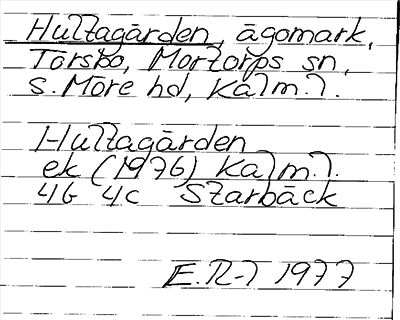 Hultagården, ägomark,
Törsbo, Mortorps sn,
S. Möre hd, Kalm. l.
Hultagården
ek (1976) Kalm. l.
4G 4c Starbäck
E.R-l 1977